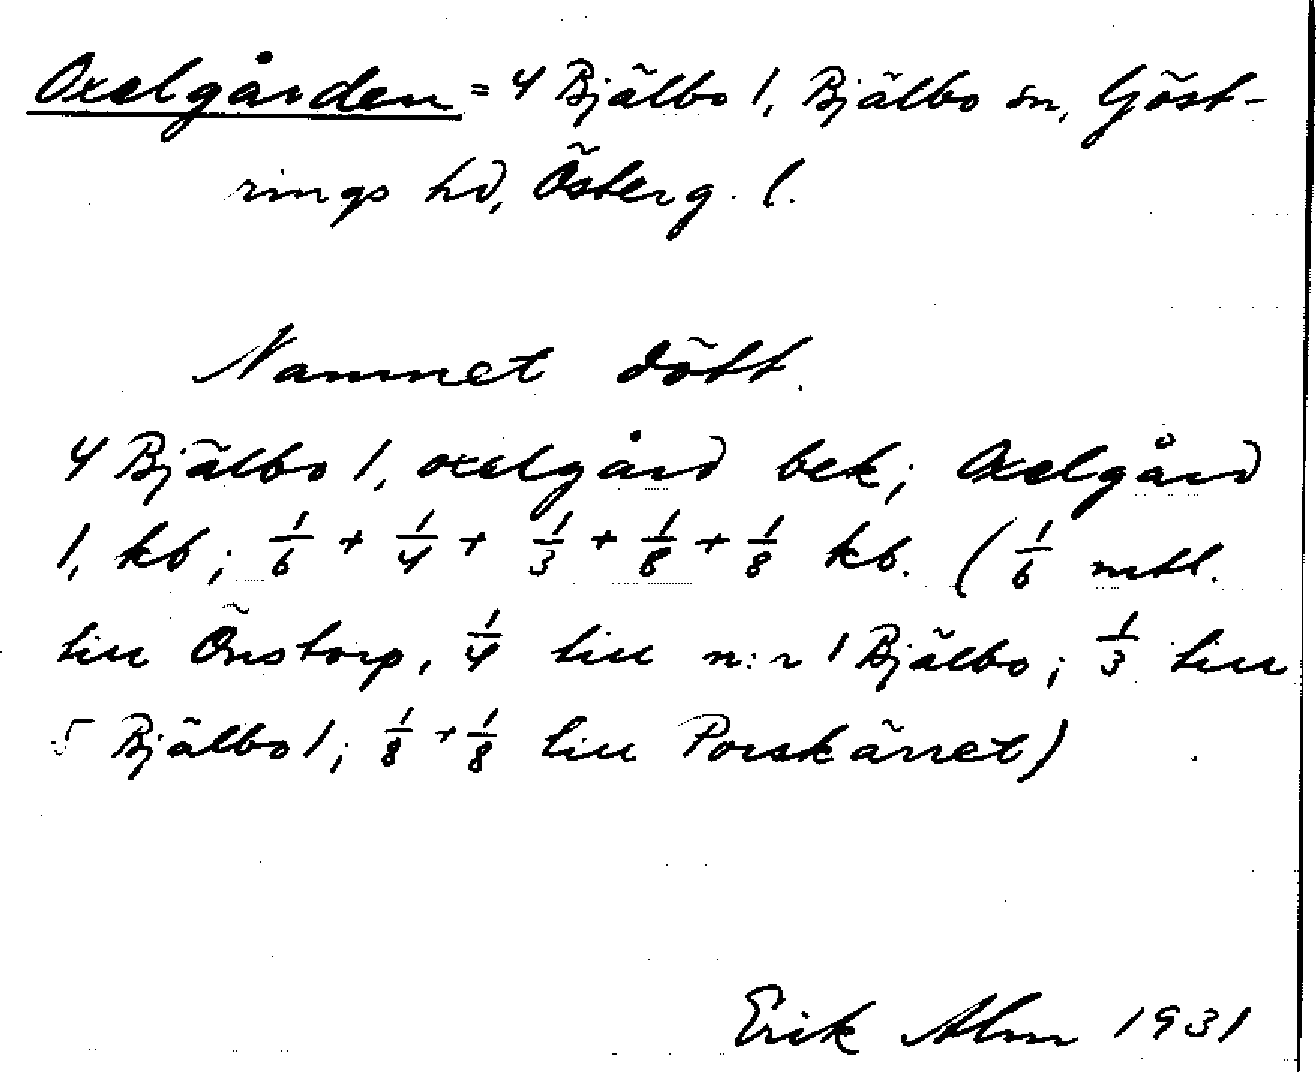 Oxelgården = 4 Bjälbo 1, Bjälbo sn, Göst-
rings hd, Österg. l.
Namnet dött.
4 Bjälbo 1, oxelgård bek; Oxelgård
1, kb; 1/6 + 1/4 + 1/3 + 1/8 + 1/8 kb. (1/6 mtl.
till Önstorp, 1/4 till n:r 1 Bjälbo; 1/3 till
5 Bjälbo 1; 1/8 + 1/8 till Porskärret)
Erik Alm 1931